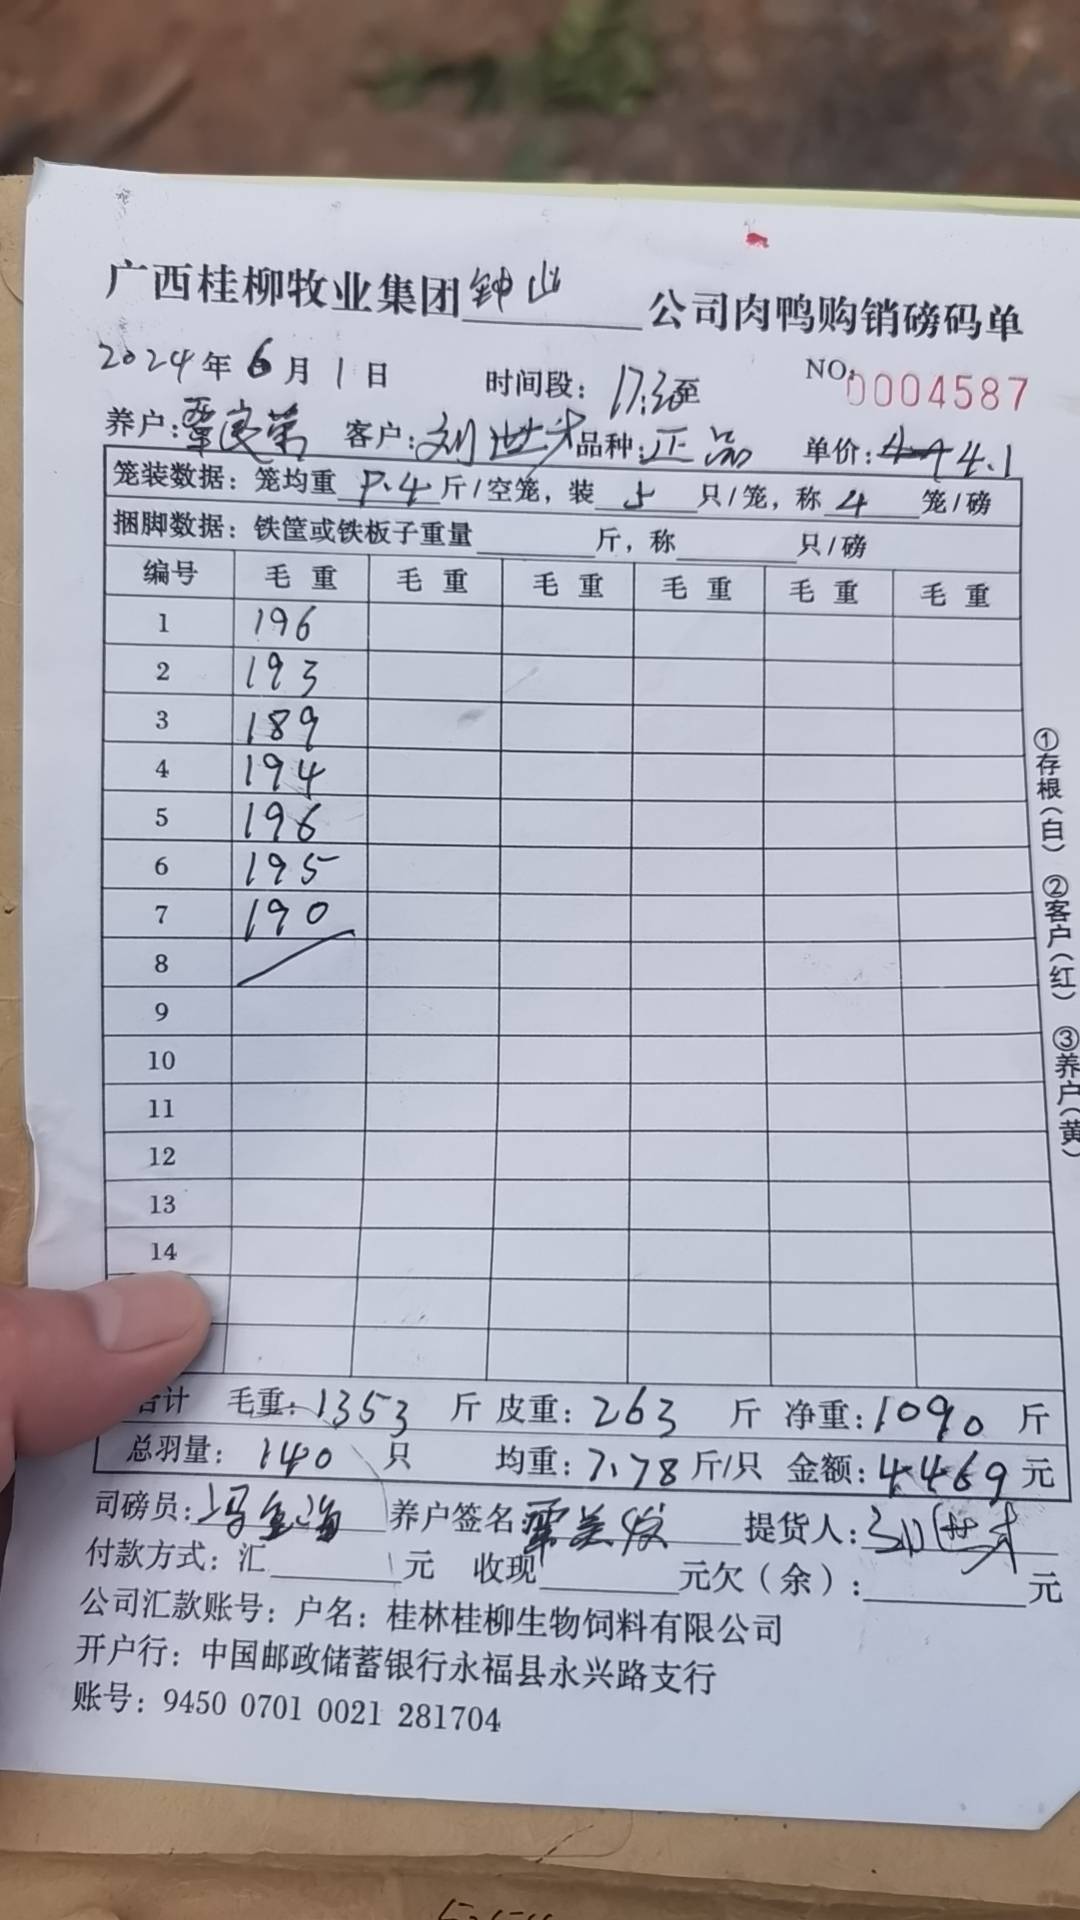 广西桂柳牧业集团钟山公司肉鸭购销磅码单
2024年6月1日 时间段：17:30至 NO:0004587
养户：覃良第 客户：刘世才 品种：正品 单价：4.1
笼装数据：笼均重9.4斤/空笼，装5只/笼，称4笼/磅
捆脚数据：铁筐或铁板子重量 斤，称 只/磅
编号 毛重 毛重 毛重 毛重 毛重 毛重
1 196
2 193
3 189
4 194
5 196
6 195
7 190
8
9
10
11
12
13
14
合计 毛重：1353 斤 皮重：263 斤 净重：1090 斤
总羽量：140 只 均重：7.78斤/只 金额：4469元
司磅员：冯金海 养户签名 提货人：刘世才
付款方式：汇 元 收现 元欠（余）： 元
公司汇款账号：户名：桂林桂柳生物饲料有限公司
开户行：中国邮政储蓄银行永福县永兴路支行
账号：9450 0701 0021 281704
①存根（白） ②客户（红） ③养户（黄）